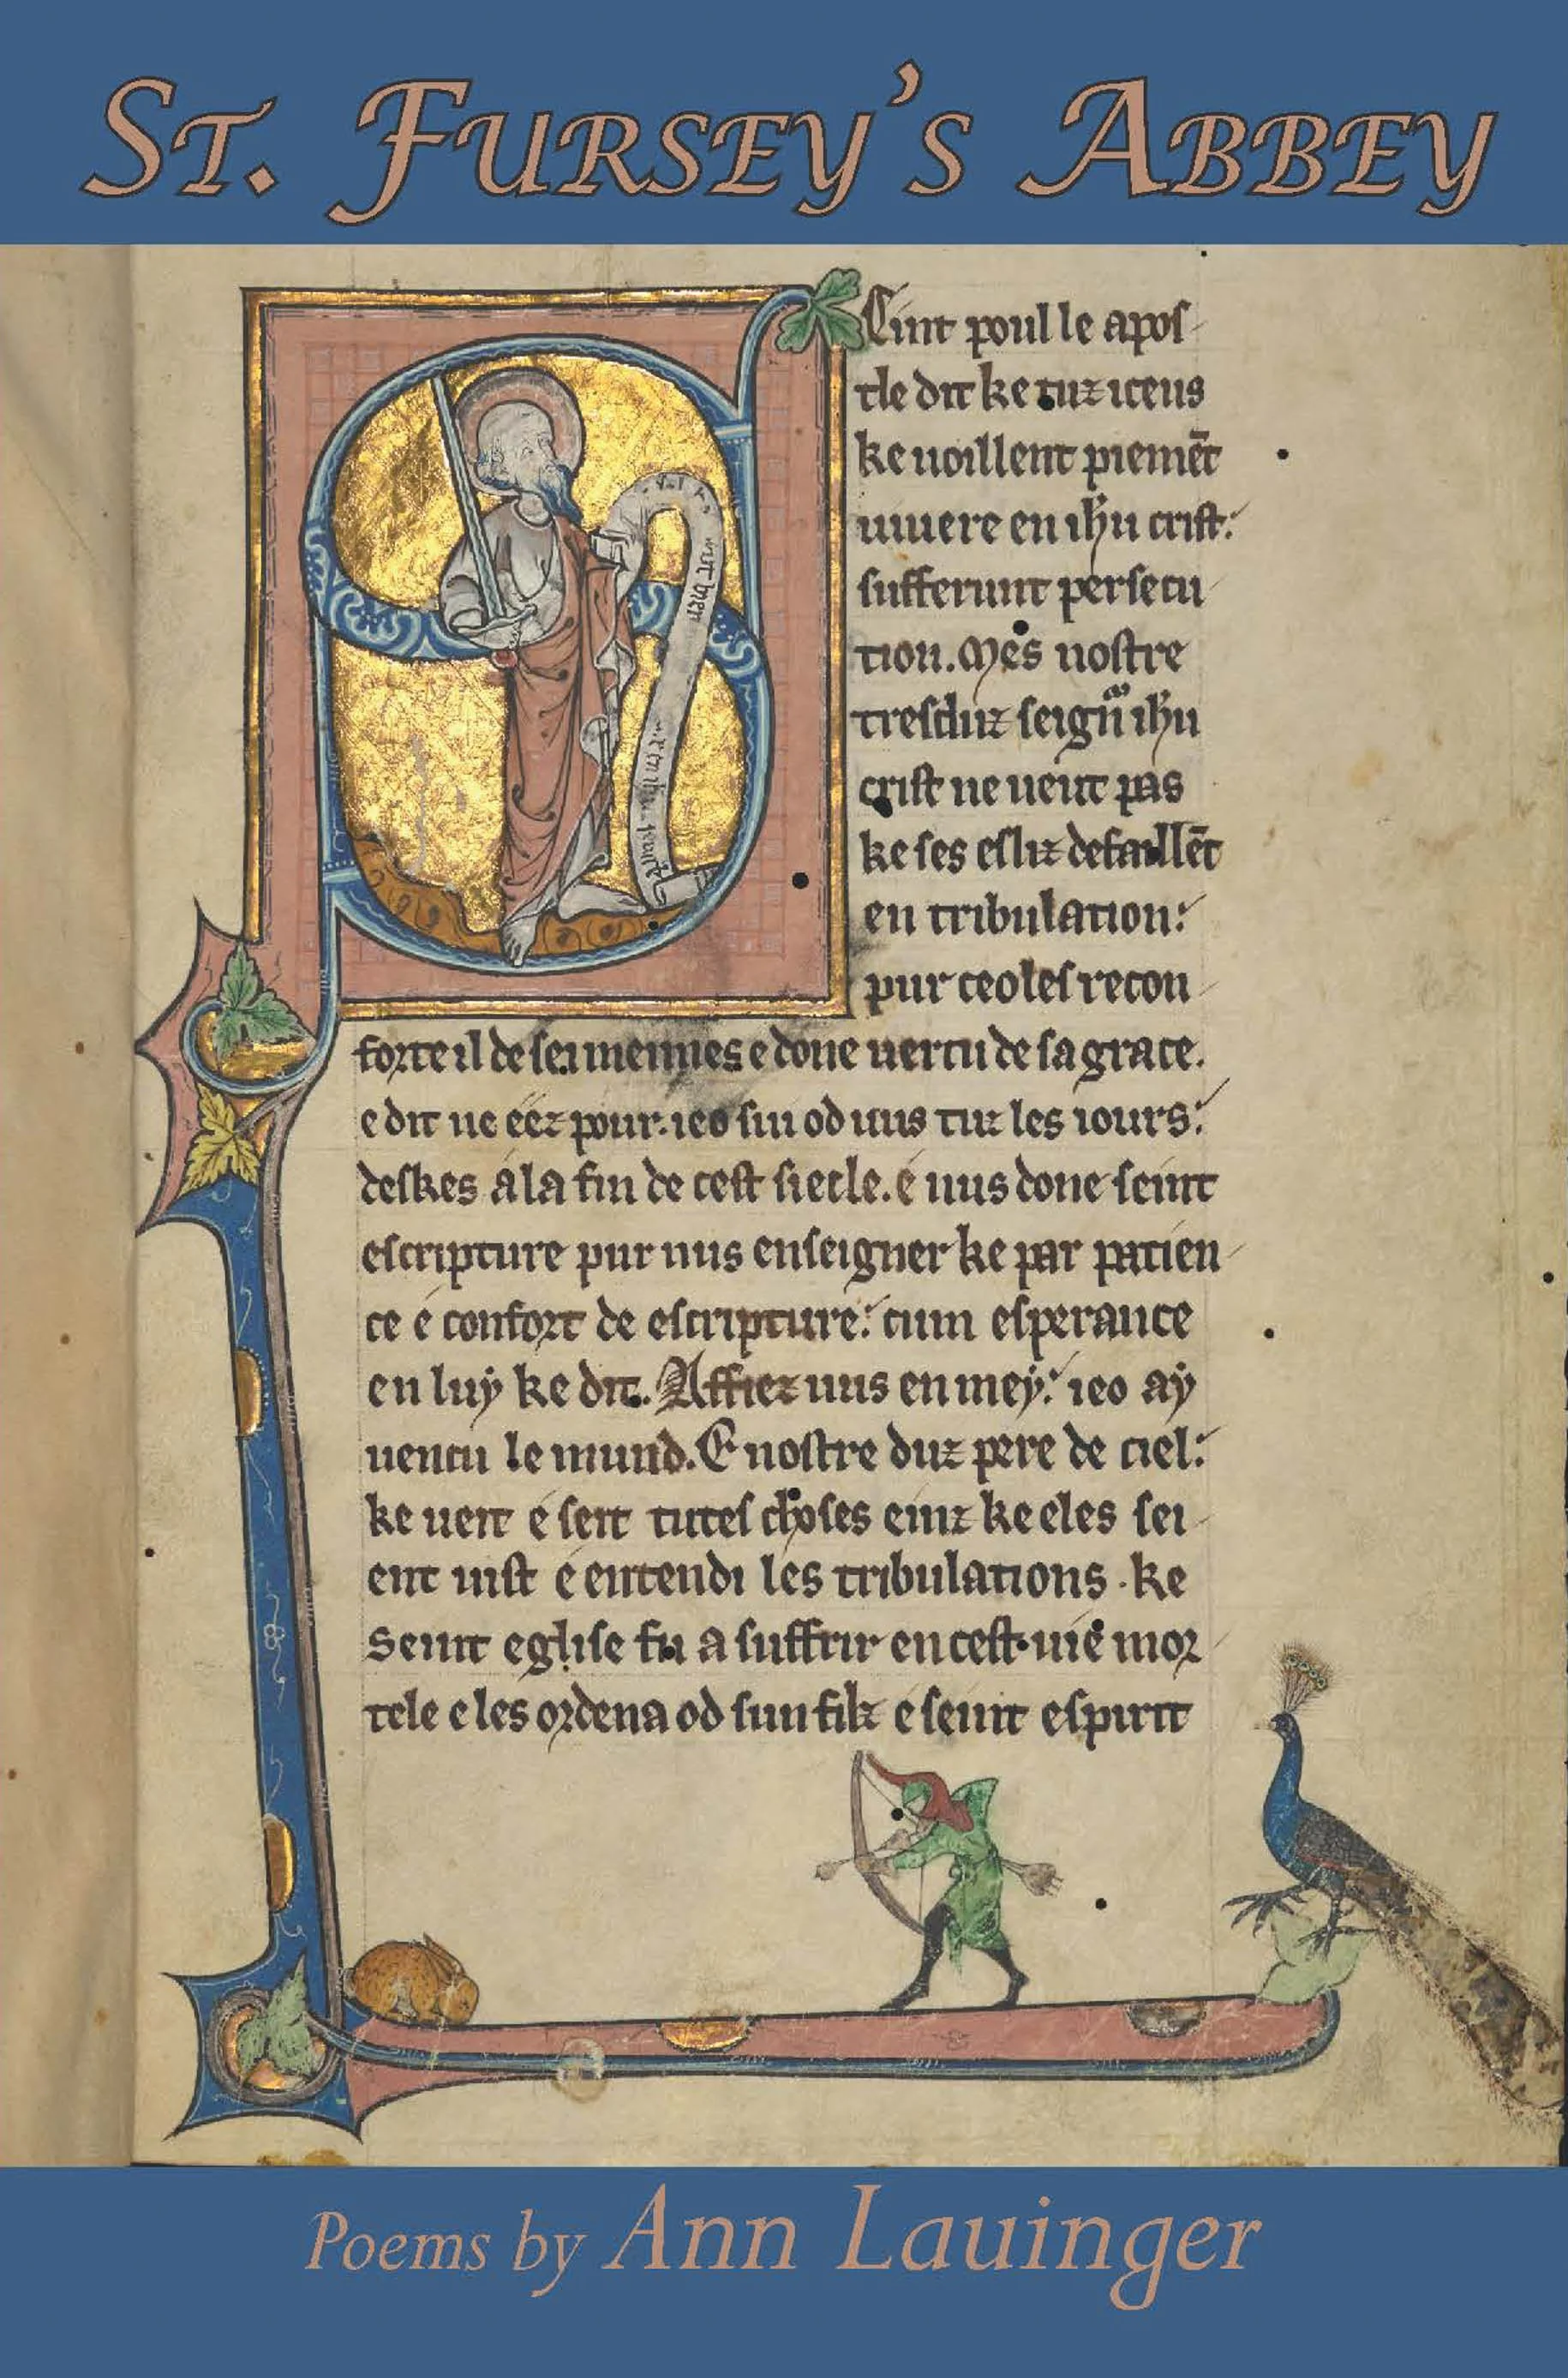 St. Fursey's Abbey
Eint poul le apos
tle dit ke tuz iceus
ke uoillent piemēt
uiuere en ihu crist:
sufferunt persecu
tion. Mes nostre
tresduz seign ihu
crist ne ueut pas
ke ses esliz defaillēt
en tribulation:
pur ceo les recon
forte il de sei mennes e done uertu de sa grace.
e dit ne eez pour. ieo sui od uus tuz les iours:
deskes a la fin de cest siecle. e nus done seint
escripture pur nus enseigner ke par patien
ce e confort de escripture: eium esperance
en luy ke dit. Affiez uus en mey: ieo ay
uencu le mund. E nostre duz pere de ciel:
ke uert e sert tutes choses einz ke eles sei
ent uist e entendi les tribulations. ke
seint eglise fu a suffrir en cest uie mor
tele e les ordena od sun filz e seint espirit
Poems by Ann Lauinger